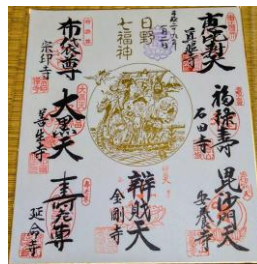 恵比寿天
真照寺
福禄寿
石田寺
毘沙門天
安養寺
日野
七福神
辨財天
金剛寺
布袋尊
宗印寺
大黒天
善生寺
寿老尊
延命寺